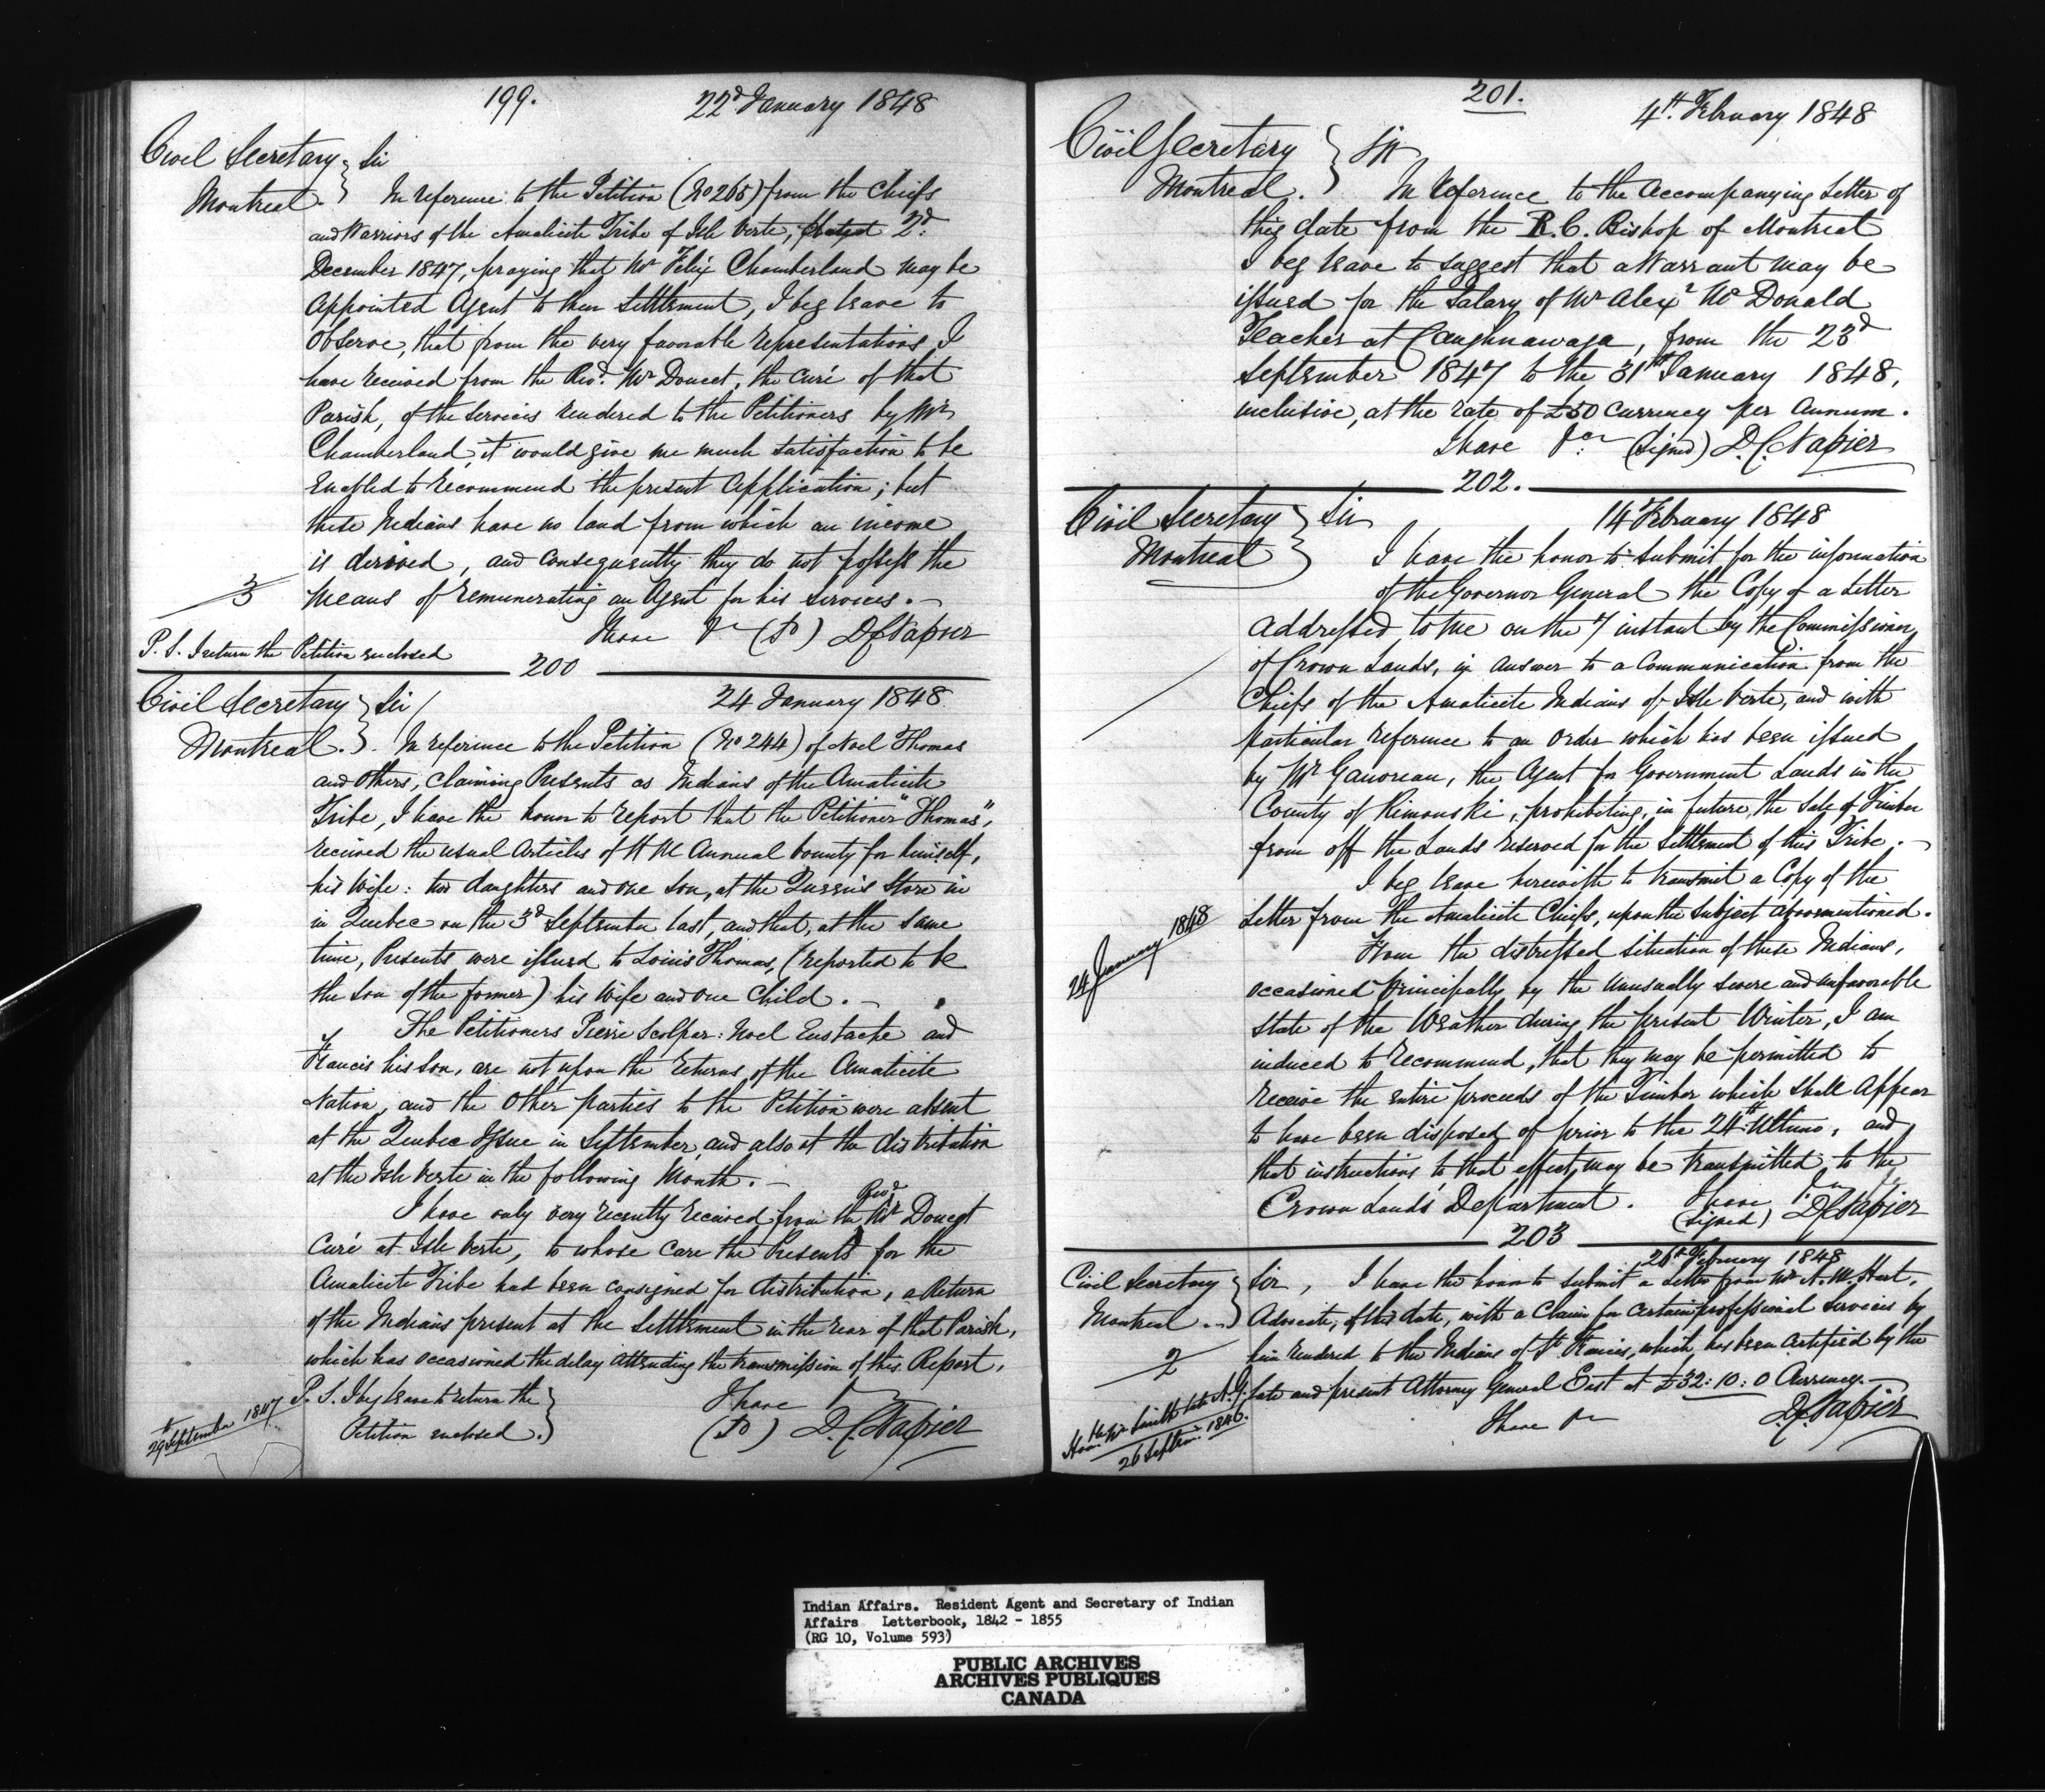 199.
22d January 1848
Civil Secretary } Sir
Montreal. } In reference to the Petition (No 265) from the Chiefs
and Warriors of the Amalicite Tribe of Isle Verte, dated 2d.
December 1847, praying that Mr Felix Chamberland may be
appointed Agent to their Settlement, I beg leave to
observe, that from the very favorable representations I
have received from the Revd. Mr Doucet, the Curé of that
Parish, of the services rendered to the Petitioners by Mr
Chamberland, it would give me much satisfaction to be
Enabled to recommend the present application; but
these Indians have no land from which an income
is derived, and consequently they do not possess the
3 means of remunerating an Agent for his services. -
I have &c (Sd) D C Napier
P. S. I return the Petition enclosed
200
Civil Secretary } Sir/ 24 January 1848
Montreal. } In reference to the Petition (No 244) of Noel Thomas
and others, claiming Presents as Indians of the Amalicite
Tribe, I have the honor to report that the Petitioner "Thomas",
received the usual Articles of H M Annual bounty for himself,
his Wife: two daughters and one son, at the Queen's Store in
in Quebec on the 3d September last, and that, at the same
time, Presents were issued to Louis Thomas, (reported to be
the son of the former) his Wife and one Child. -
The Petitioners Pierre Scolpar: Noel Eustache and
Francis his son, are not upon the returns of the Amalicite
Nation, and the other parties to the Petition were absent
at the Quebec Issue in September, and also at the distribution
at the Isle Verte in the following Month. -
I have only very recently received from the Revd Mr Doucet
Curé at Isle Verte, to whose care the Presents for the
Amalicite Tribe had been consigned for distribution, a Return
of the Indians present at the Settlement in the rear of that Parish,
which has occasioned the delay attending the transmission of this Report.
P. S. I beg leave to return the } I have &c
Petition enclosed. } (Sd) D. C. Napier
29th September 1847
201.
4th. February 1848
Civil Secretary } Sir
Montreal. } In reference to the accompanying Letter of
this date from the R. C. Bishop of Montreal
I beg leave to suggest that a Warrant may be
issued for the Salary of Mr Alexr Mc Donald
Teacher at Caughnawaga, from the 23d
September 1847 to the 31st January 1848,
inclusive, at the rate of £50 Currency per Annum.
I have &c: (Signed) D. C. Napier
202.
Civil Secretary } Sir 14 February 1848
Montreal } I have the honor to submit for the information
of the Governor General the Copy of a Letter
addressed to me on the 7 instant by the Commissioner
of Crown Lands, in answer to a Communication from the
Chiefs of the Amalicite Indians of Isle Verte, and with
particular reference to an order which has been issued
by Mr Gauvreau, the Agent for Government Lands in the
County of Rimouski, prohibiting, in future, the sale of Timber
from off the Lands reserved for the Settlement of this Tribe. -
I beg leave herewith to transmit a Copy of the
24 January 1848 Letter from the Amalicite Chiefs, upon the subject aforementioned.
From the distressed situation of these Indians,
occasioned principally by the unusually severe and unfavorable
state of the Weather during the present Winter, I am
induced to recommend, that they may be permitted to
receive the entire proceeds of the Timber which shall appear
to have been disposed of prior to the 24th Ultimo, and
that instructions to that effect, may be transmitted to the
Crown Lands Department. I have &c
(Signed) D C Napier
203
26th February 1848
Civil Secretary } Sir, I have the honor to submit a Letter from Mr A. M. Hart,
Montreal } Advocate, of this date, with a Claim for certain professional services by
2 him rendered to the Indians of St Francis, which has been certified by the
late and present Attorney General East at £32: 10: 0 Currency. -
Honble Mr Smith late A. G.
26 Septemr. 1846.
I have &c D. C. Napier
Indian Affairs. Resident Agent and Secretary of Indian
Affairs Letterbook, 1842 - 1855
(RG 10, Volume 593)
PUBLIC ARCHIVES
ARCHIVES PUBLIQUES
CANADA